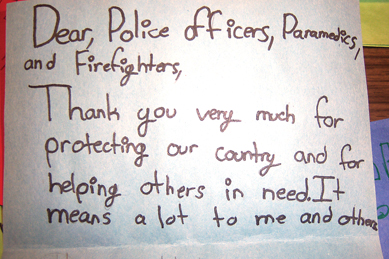 Dear, Police officers, Paramedics,
and Firefighters,
Thank you very much for
protecting our country and for
helping others in need. It
means a lot to me and others